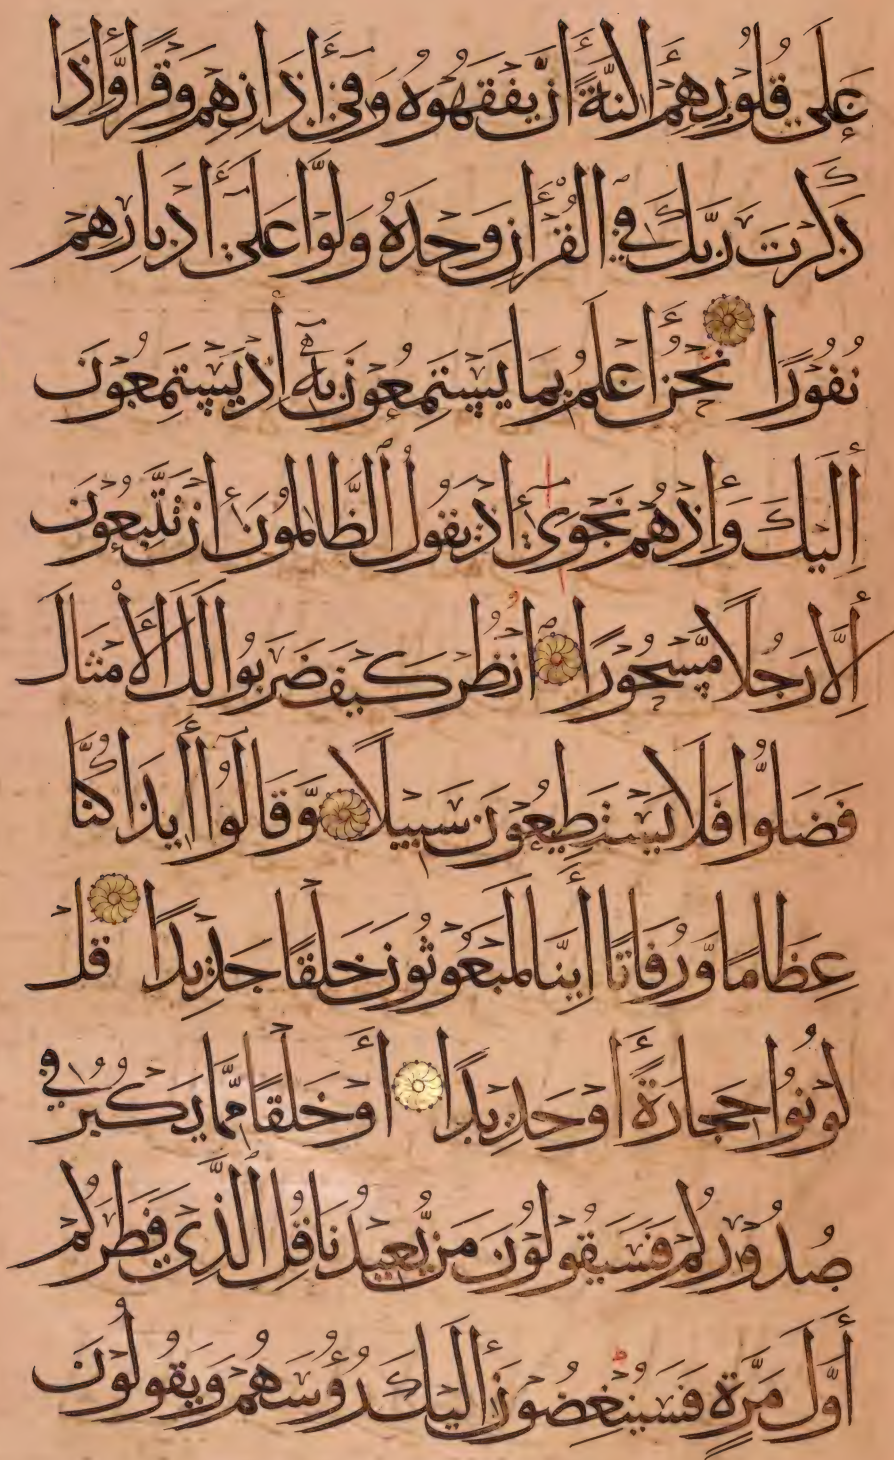 عَلَى قُلُوبِهِمْ أَكِنَّةً أَنْ يَفْقَهُوهُ وَفِي أَذَانِهِمْ وَقْرًا وَإِذَا
ذَكَرْتَ رَبَّكَ فِي الْقُرْأَنِ وَحْدَهُ وَلَّوْا عَلَى أَدْبَارِهِمْ
نُفُورًا نَحْنُ أَعْلَمُ بِمَا يَسْتَمِعُونَ بِهِ إِذْ يَسْتَمِعُونَ
إِلَيْكَ وَإِذْ هُمْ نَجْوَى إِذْ يَقُولُ الظَّالِمُونَ إِنْ تَتَّبِعُونَ
إِلَّا رَجُلًا مَّسْحُورًا انْظُرْ كَيْفَ ضَرَبُوا لَكَ الْأَمْثَالَ
فَضَلُّوا فَلَا يَسْتَطِيعُونَ سَبِيلًا وَّقَالُوا أَإِذَا كُنَّا
عِظَامًا وَّرُفَاتًا أَإِنَّا لَمَبْعُوثُونَ خَلْقًا جَدِيدًا قُلْ
كُونُوا حِجَارَةً أَوْ حَدِيدًا أَوْ خَلْقًا مِّمَّا يَكْبُرُ فِي
صُدُورِكُمْ فَسَيَقُولُونَ مَنْ يُّعِيدُنَا قُلِ الَّذِي فَطَرَكُمْ
أَوَّلَ مَرَّةٍ فَسَيُنْغِضُونَ إِلَيْكَ رُؤُسَهُمْ وَيَقُولُونَ